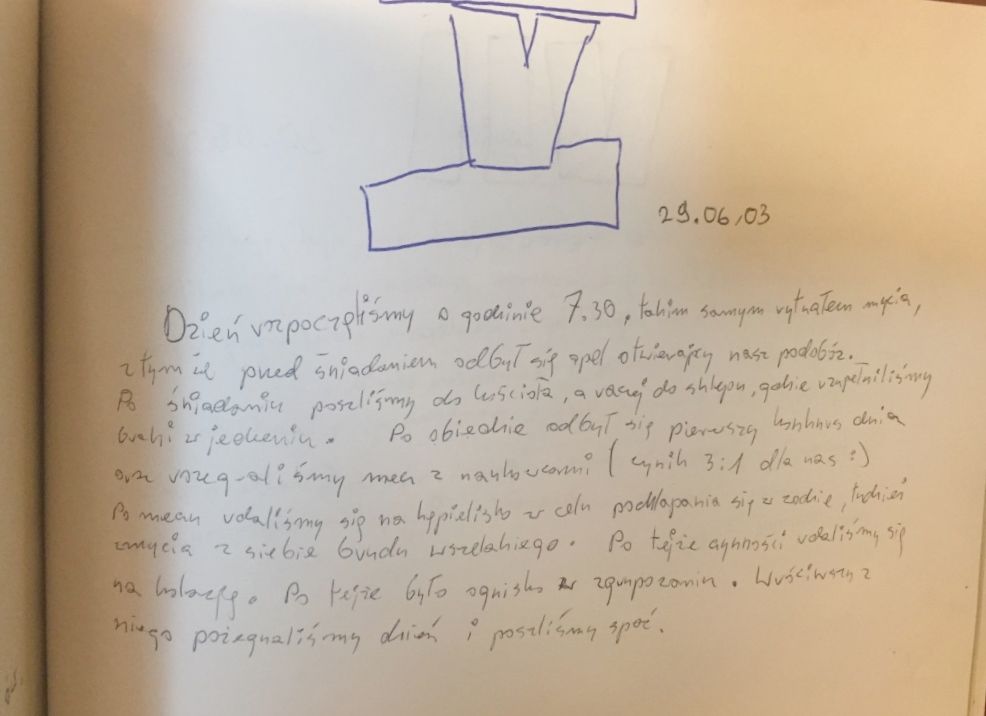 29.06.03
Dzień rozpoczęliśmy o godzinie 7.30, takim samym rytuałem mycia,
z tym że przed śniadaniem odbył się apel otwierający nasz podobóz.
Po śniadaniu poszliśmy do kościoła, a później do sklepu, gdzie uzupełniliśmy
braki w jedzeniu. Po obiedzie odbył się pierwszy konkurs dnia
oraz rozegraliśmy mecz z naukowcami (wynik 3:1 dla nas :)
Po meczu udaliśmy się na kąpielisko w celu podtapiania się w wodzie, tudzież
zmycia z siebie brudu wszelakiego. Po tejże czynności udaliśmy się
na kolację. Po tejże było ognisko w zgrupowaniu. Wróciwszy z
niego pożegnaliśmy dzień i poszliśmy spać.